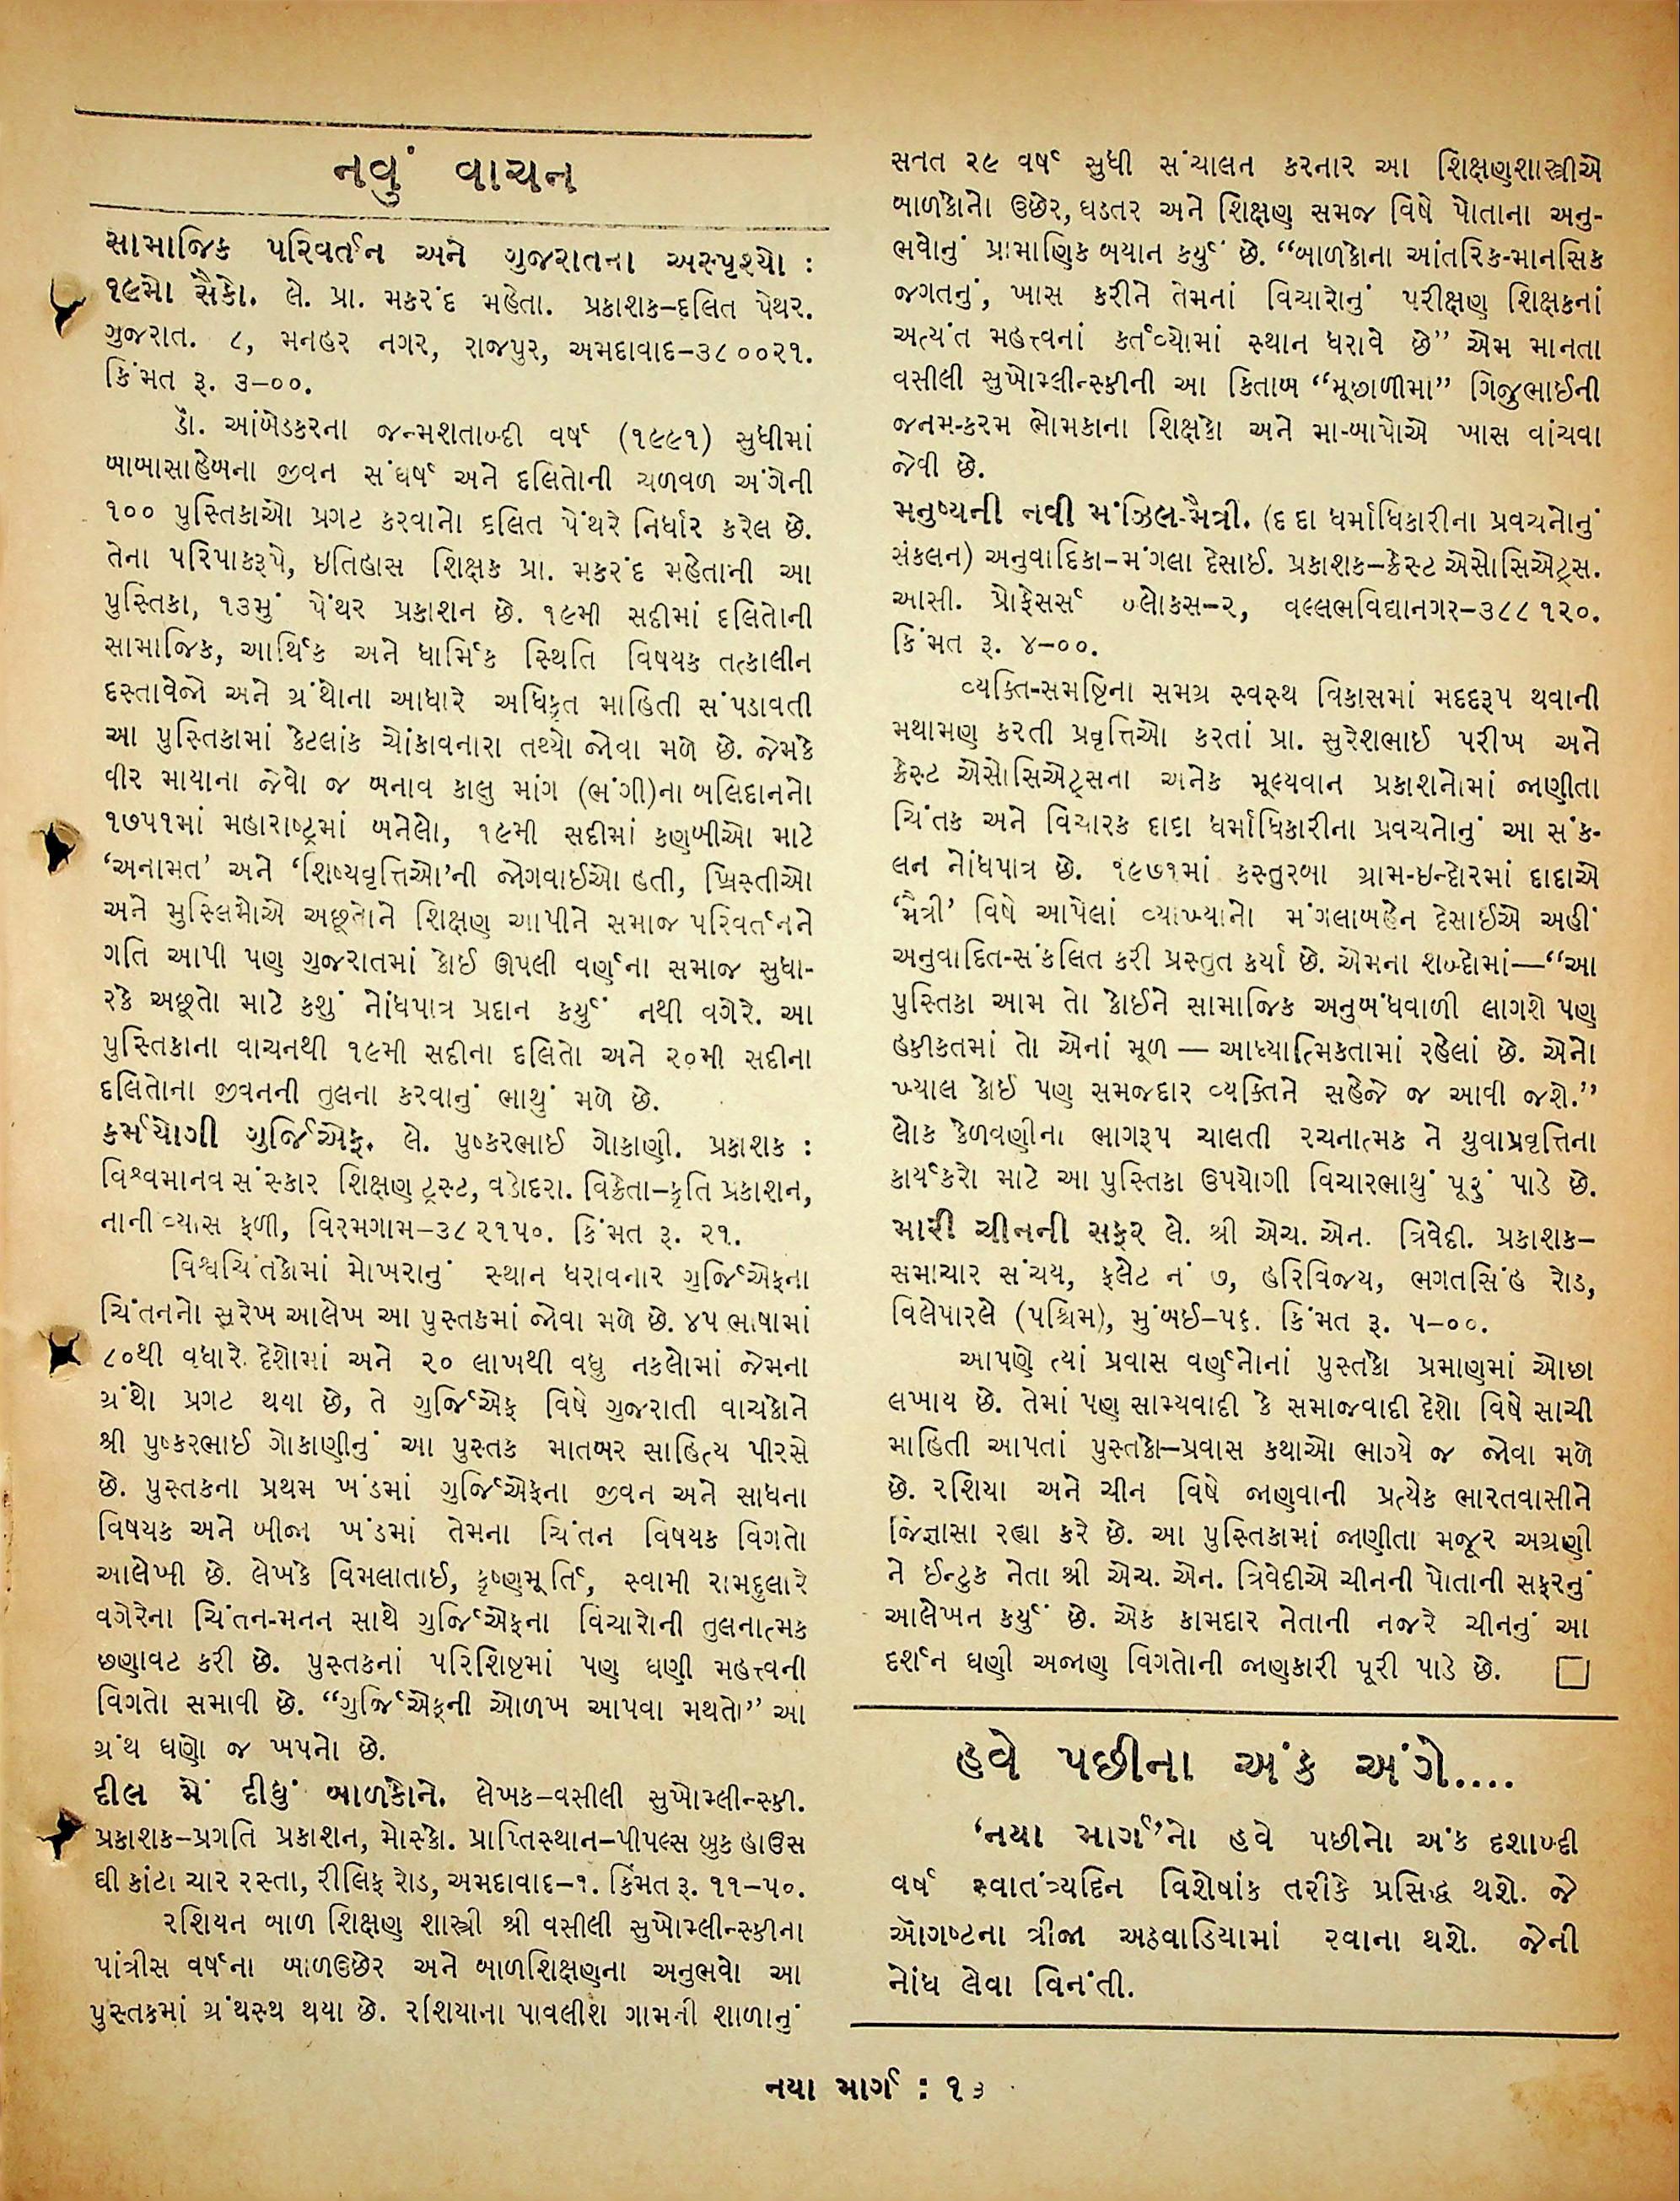 નવું વાચન
સામાજિક પરિવર્તન અને ગુજરાતના અસ્પૃશ્યો :
૧૯મો સૈકો. લે. પ્રા. મકરંદ મહેતા. પ્રકાશક–દલિત પેંથર.
ગુજરાત. ૮, મનહર નગર, રાજપુર, અમદાવાદ–૩૮૦૦૨૧.
કિંમત રૂ. ૩–૦૦.
ડૉ. આંબેડકરના જન્મશતાબ્દી વર્ષ (૧૯૯૧) સુધીમાં
બાબાસાહેબના જીવન સંઘર્ષ અને દલિતોની ચળવળ અંગેની
૧૦૦ પુસ્તિકાઓ પ્રગટ કરવાનો દલિત પેંથરે નિર્ધાર કરેલ છે.
તેના પરિપાકરૂપે, ઇતિહાસ શિક્ષક પ્રા. મકરંદ મહેતાની આ
પુસ્તિકા, ૧૩મું પેંથર પ્રકાશન છે. ૧૯મી સદીમાં દલિતોની
સામાજિક, આર્થિક અને ધાર્મિક સ્થિતિ વિષયક તત્કાલીન
દસ્તાવેજો અને ગ્રંથોના આધારે અધિકૃત માહિતી સંપડાવતી
આ પુસ્તિકામાં કેટલાંક ચોંકાવનારા તથ્યો જોવા મળે છે. જેમકે
વીર માયાના જેવો જ બનાવ કાલુ માંગ (ભંગી)ના બલિદાનનો
૧૭૫૧માં મહારાષ્ટ્રમાં બનેલો, ૧૯મી સદીમાં કણબીઓ માટે
‘અનામત’ અને ‘શિષ્યવૃત્તિઓ’ની જોગવાઈઓ હતી, ખ્રિસ્તીઓ
અને મુસ્લિમોએ અછૂતોને શિક્ષણ આપીને સમાજ પરિવર્તનને
ગતિ આપી પણ ગુજરાતમાં કોઈ ઊપલી વર્ણના સમાજ સુધા-
રકે અછૂતો માટે કશું નોંધપાત્ર પ્રદાન કર્યું નથી વગેરે. આ
પુસ્તિકાના વાચનથી ૧૯મી સદીના દલિતો અને ૨૦મી સદીના
દલિતોના જીવનની તુલના કરવાનું ભાથું મળે છે.
કર્મયોગી ગુર્જિએફ. લે. પુષ્કરભાઈ ગોકાણી. પ્રકાશક :
વિશ્વમાનવ સંસ્કાર શિક્ષણ ટ્રસ્ટ, વડોદરા. વિક્રેતા–કૃતિ પ્રકાશન,
નાની વ્યાસ ફળી, વિરમગામ–૩૮૨૧૫૦. કિંમત રૂ. ૨૧.
વિશ્વચિંતકોમાં મોખરાનું સ્થાન ધરાવનાર ગુર્જિએફના
ચિંતનનો સુરેખ આલેખ આ પુસ્તકમાં જોવા મળે છે. ૪૫ ભાષામાં
૮૦થી વધારે દેશોમાં અને ૨૦ લાખથી વધુ નકલોમાં જેમના
ગ્રંથો પ્રગટ થયા છે, તે ગુર્જિએફ વિષે ગુજરાતી વાચકોને
શ્રી પુષ્કરભાઈ ગોકાણીનું આ પુસ્તક માતબર સાહિત્ય પીરસે
છે. પુસ્તકના પ્રથમ ખંડમાં ગુર્જિએફના જીવન અને સાધના
વિષયક અને બીજા ખંડમાં તેમના ચિંતન વિષયક વિગતો
આલેખી છે. લેખકે વિમલાતાઈ, કૃષ્ણમૂર્તિ, સ્વામી રામદુલારે
વગેરેના ચિંતન-મનન સાથે ગુર્જિએફના વિચારોની તુલનાત્મક
છણાવટ કરી છે. પુસ્તકનાં પરિશિષ્ટમાં પણ ઘણી મહત્ત્વની
વિગતો સમાવી છે. “ગુર્જિએફની ઓળખ આપવા મથતો” આ
ગ્રંથ ઘણો જ ખપનો છે.
દીલ મેં દીધું બાળકોને. લેખક–વસીલી સુખોમ્લીન્સ્કી.
પ્રકાશક–પ્રગતિ પ્રકાશન, મોસ્કો. પ્રાપ્તિસ્થાન–પીપલ્સ બુક હાઉસ
ઘી કાંટા ચાર રસ્તા, રીલિફ રોડ, અમદાવાદ–૧. કિંમત રૂ. ૧૧–૫૦.
રશિયન બાળ શિક્ષણ શાસ્ત્રી શ્રી વસીલી સુખોમ્લીન્સ્કીના
પાંત્રીસ વર્ષના બાળઉછેર અને બાળશિક્ષણના અનુભવો આ
પુસ્તકમાં ગ્રંથસ્થ થયા છે. રશિયાના પાવલીશ ગામની શાળાનું
સતત ૨૯ વર્ષ સુધી સંચાલન કરનાર આ શિક્ષણશાસ્ત્રીએ
બાળકોનો ઉછેર, ઘડતર અને શિક્ષણ સમજ વિષે પોતાના અનુ-
ભવોનું પ્રામાણિક બયાન કર્યું છે. “બાળકોના આંતરિક-માનસિક
જગતનું, ખાસ કરીને તેમનાં વિચારોનું પરીક્ષણ શિક્ષકનાં
અત્યંત મહત્ત્વનાં કર્તવ્યોમાં સ્થાન ધરાવે છે” એમ માનતા
વસીલી સુખોમ્લીન્સ્કીની આ કિતાબ “મૂછાળીમા” ગિજુભાઈની
જનમ-કરમ ભોમકાના શિક્ષકો અને મા-બાપોએ ખાસ વાંચવા
જેવી છે.
મનુષ્યની નવી મંઝિલ-મૈત્રી. (દ દા ધર્માધિકારીના પ્રવચનોનું
સંકલન) અનુવાદિકા–મંગલા દેસાઈ. પ્રકાશક–ક્રેસ્ટ એસોસિએટ્સ.
આસી. પ્રોફેસર્સ બ્લોકસ–૨, વલ્લભવિદ્યાનગર–૩૮૮૧૨૦.
કિંમત રૂ. ૪–૦૦.
વ્યક્તિ-સમષ્ટિના સમગ્ર સ્વસ્થ વિકાસમાં મદદરૂપ થવાની
મથામણ કરતી પ્રવૃત્તિઓ કરતાં પ્રા. સુરેશભાઈ પરીખ અને
ક્રેસ્ટ એસોસિએટ્સના અનેક મૂલ્યવાન પ્રકાશનોમાં જાણીતા
ચિંતક અને વિચારક દાદા ધર્માધિકારીના પ્રવચનોનું આ સંક-
લન નોંધપાત્ર છે. ૧૯૭૧માં કસ્તુરબા ગ્રામ-ઇન્દોરમાં દાદાએ
‘મૈત્રી’ વિષે આપેલાં વ્યાખ્યાનો મંગલાબહેન દેસાઈએ અહીં
અનુવાદિત-સંકલિત કરી પ્રસ્તુત કર્યાં છે. એમના શબ્દોમાં—“આ
પુસ્તિકા આમ તો કોઈને સામાજિક અનુબંધવાળી લાગશે પણ
હકીકતમાં તો એનાં મૂળ — આધ્યાત્મિકતામાં રહેલાં છે. એનો
ખ્યાલ કોઈ પણ સમજદાર વ્યક્તિને સહેજે જ આવી જશે.”
લોક કેળવણીના ભાગરૂપ ચાલતી રચનાત્મક ને યુવાપ્રવૃત્તિના
કાર્યકરો માટે આ પુસ્તિકા ઉપયોગી વિચારભાથું પૂરું પાડે છે.
મારી ચીનની સફર લે. શ્રી એચ. એન. ત્રિવેદી. પ્રકાશક–
સમાચાર સંચય, ફ્લેટ નં ૭, હરિવિજય, ભગતસિંહ રોડ,
વિલેપારલે (પશ્ચિમ), મુંબઈ–૫૬. કિંમત રૂ. ૫–૦૦.
આપણે ત્યાં પ્રવાસ વર્ણનોનાં પુસ્તકો પ્રમાણમાં ઓછા
લખાય છે. તેમાં પણ સામ્યવાદી કે સમાજવાદી દેશો વિષે સાચી
માહિતી આપતાં પુસ્તકો–પ્રવાસ કથાઓ ભાગ્યે જ જોવા મળે
છે. રશિયા અને ચીન વિષે જાણવાની પ્રત્યેક ભારતવાસીને
જિજ્ઞાસા રહ્યા કરે છે. આ પુસ્તિકામાં જાણીતા મજૂર અગ્રણી
ને ઈન્ટુક નેતા શ્રી એચ. એન. ત્રિવેદીએ ચીનની પોતાની સફરનું
આલેખન કર્યું છે. એક કામદાર નેતાની નજરે ચીનનું આ
દર્શન ઘણી અજાણ વિગતોની જાણકારી પૂરી પાડે છે.
હવે પછીના અંક અંગે....
‘નયા માર્ગ’નો હવે પછીનો અંક દશાબ્દી
વર્ષ સ્વાતંત્ર્યદિન વિશેષાંક તરીકે પ્રસિદ્ધ થશે. જે
ઑગષ્ટના ત્રીજા અઠવાડિયામાં રવાના થશે. જેની
નોંધ લેવા વિનંતી.
નયા માર્ગ : ૧૩